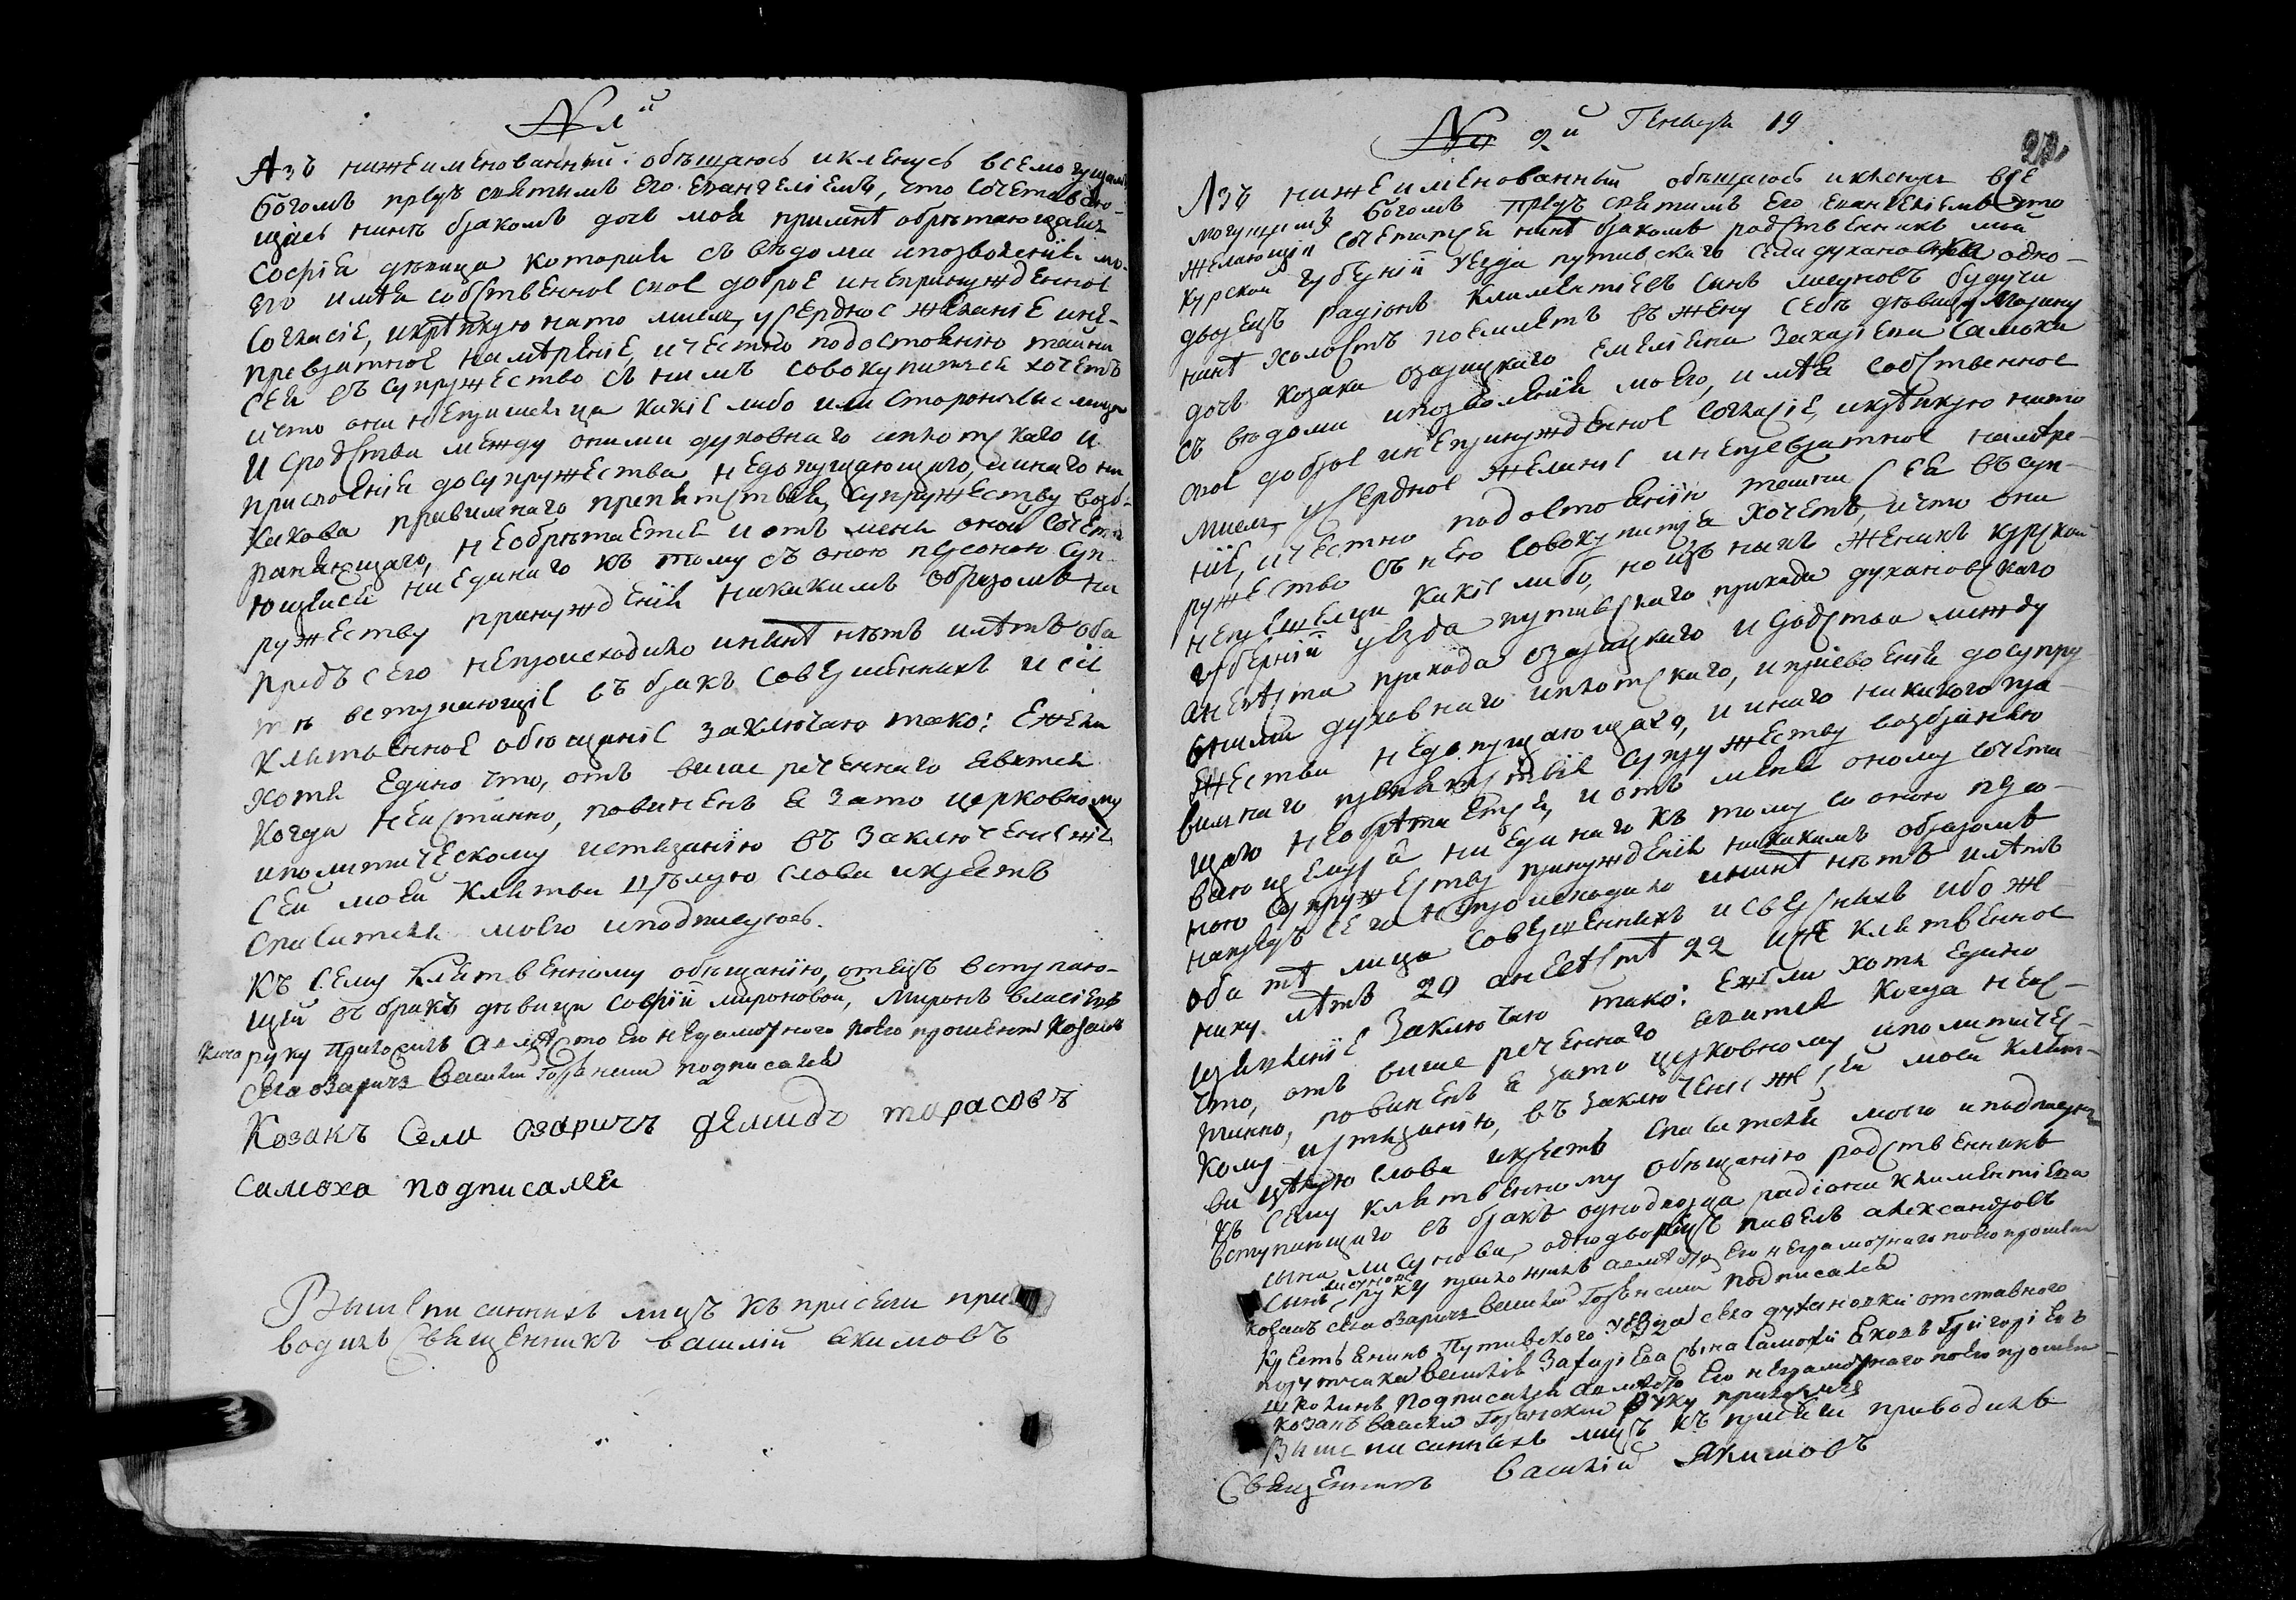 № 1й
Азъ нижеименованный обѣщаюсь и кленусь всемогущимъ
богомъ предъ святимъ его евангелiемъ, что сочетаваю-
щаясь нинѣ бракомъ дочь моя примнѣ обрѣтающаяся
Софiя дѣвица которая съ вѣдома и позволенiя мо-
его имѣя собственное свое доброе и непринужденное
согласiе, и крѣпкую на то мисль, усердное желанiе и не-
превратное намѣренiе, и честно по достоянiю тайни
сея въ супружество съ нимъ совокупитися хочетъ
и что они не пришелца какiе либо или стороннiе лица
и сродства между оними духовнаго и плотскаго и
присвоенiя до супружества недопущающаго, и инаго ни
какова правилнаго препятствiя супружеству возб-
раняющаго, не обрѣтается и отъ мене оной сочета
ющейся ни единаго къ тому съ оною персоною суп-
ружеству принужденiя никакимъ образомъ на
предъ сего не происходило и нинѣ нѣтъ и лѣтъ оба
тѣ вступающiе въ бракъ совершеннихъ и сiе
клятвенное обѣщанiе заключаю тако: ежели
хотя едино что, отъ више реченнаго явится
когда неистинно, повиненъ я за то церковному
и политическому истязанiю въ заключенiе же
сей моей клятви цѣлую слова и крестъ
спасителя моего и подписуюсь.
Къ сему клятвенному обѣщанiю, отецъ вступаю-
щей въ бракъ дѣвици Софiи Мироновой, Миронъ Власiевъ
руку приложилъ а вмѣсто его неграмотнаго по его прошенiю козакъ
села Озаричъ Василий подписался
Козакъ села Озаричъ Демидъ Тарасовъ
Самоха подписался
Вишеписаннихъ лицъ къ присеги при
водилъ священникъ Василiй Якимовъ
№ 2й Генваря 19
Азъ нижеименованный обѣщаюсь и кленусь все
могущимъ богомъ предъ святимъ его евангелiемъ что
желающiй сочетатся нинѣ бракомъ родственникъ мой
Курской губернiи уезда путивскаго села духановки одно-
дворецъ Радiонъ Климентiевъ синъ Лисуновъ будучи
нинѣ холостъ поемлетъ въ жену себѣ дѣвицу Марину
дочь козака озарицкаго Емелiена Захарiева Самохи
съ вѣдома и позволенiя моего, и мѣя собственное
свое доброе и непринужденное согласiе, и крѣпкую на то
мисль, усердное желанiе и непревратное намѣре-
нiе, и честно по достоянiю тайни сея въ суп-
ружество съ нею совокупится хочетъ, и что они
не пришелци какiе либо, но изъ нихъ женихъ курской
губернiи уезда путивскаго прихода духановскаго
а невѣста прихода озарицкаго и сродства между
оними духовнаго и плотскаго, и присвоенiя до супру
жества недопущающаго, и инаго никакого пра-
вилнаго препятствiя супружеству возбраняю
щаго не обрѣтается, и отъ мене оному сочета
вающемуся ни единаго къ тому со оною персо-
ною супружеству принужденiя никакимъ образомъ
напредъ сего не происходило и нинѣ нѣтъ и лѣтъ
оба тѣ лица совершеннихъ и своихъ ибо же-
ниху лѣтъ 20 а невѣстѣ 22 и сiе клятвенное
заключаю тако: ежели хотя едино
что, отъ више реченнаго явится когда неис-
тинно, повиненъ я за то церковному и политичес-
кому истязанiю, въ заключенiе же сей моей клят-
ви цѣлую слова и крестъ спасителя моего и подписуюсь
Къ сему клятвенному обѣщанiю родственникъ
вступающаго въ бракъ однодворца Радiона Климентiева
сына Лисунова, однодворецъ Павелъ Александровъ
синъ Лисуновъ руку приложилъ а вмѣсто его неграмотнаго по его прошенiю
козакъ села Озаричъ Василий подписался
Крестянинъ Путивского уезда села Духановки отставного
Василия Захарiева сына Самохи Яковъ Григорiевъ
подписался а вмѣсто его неграмотнаго по его прошенiю
козакъ Василий руку приложилъ
Више писаннихъ лицъ къ присяги приводилъ
священникъ Василiй Якимовъ